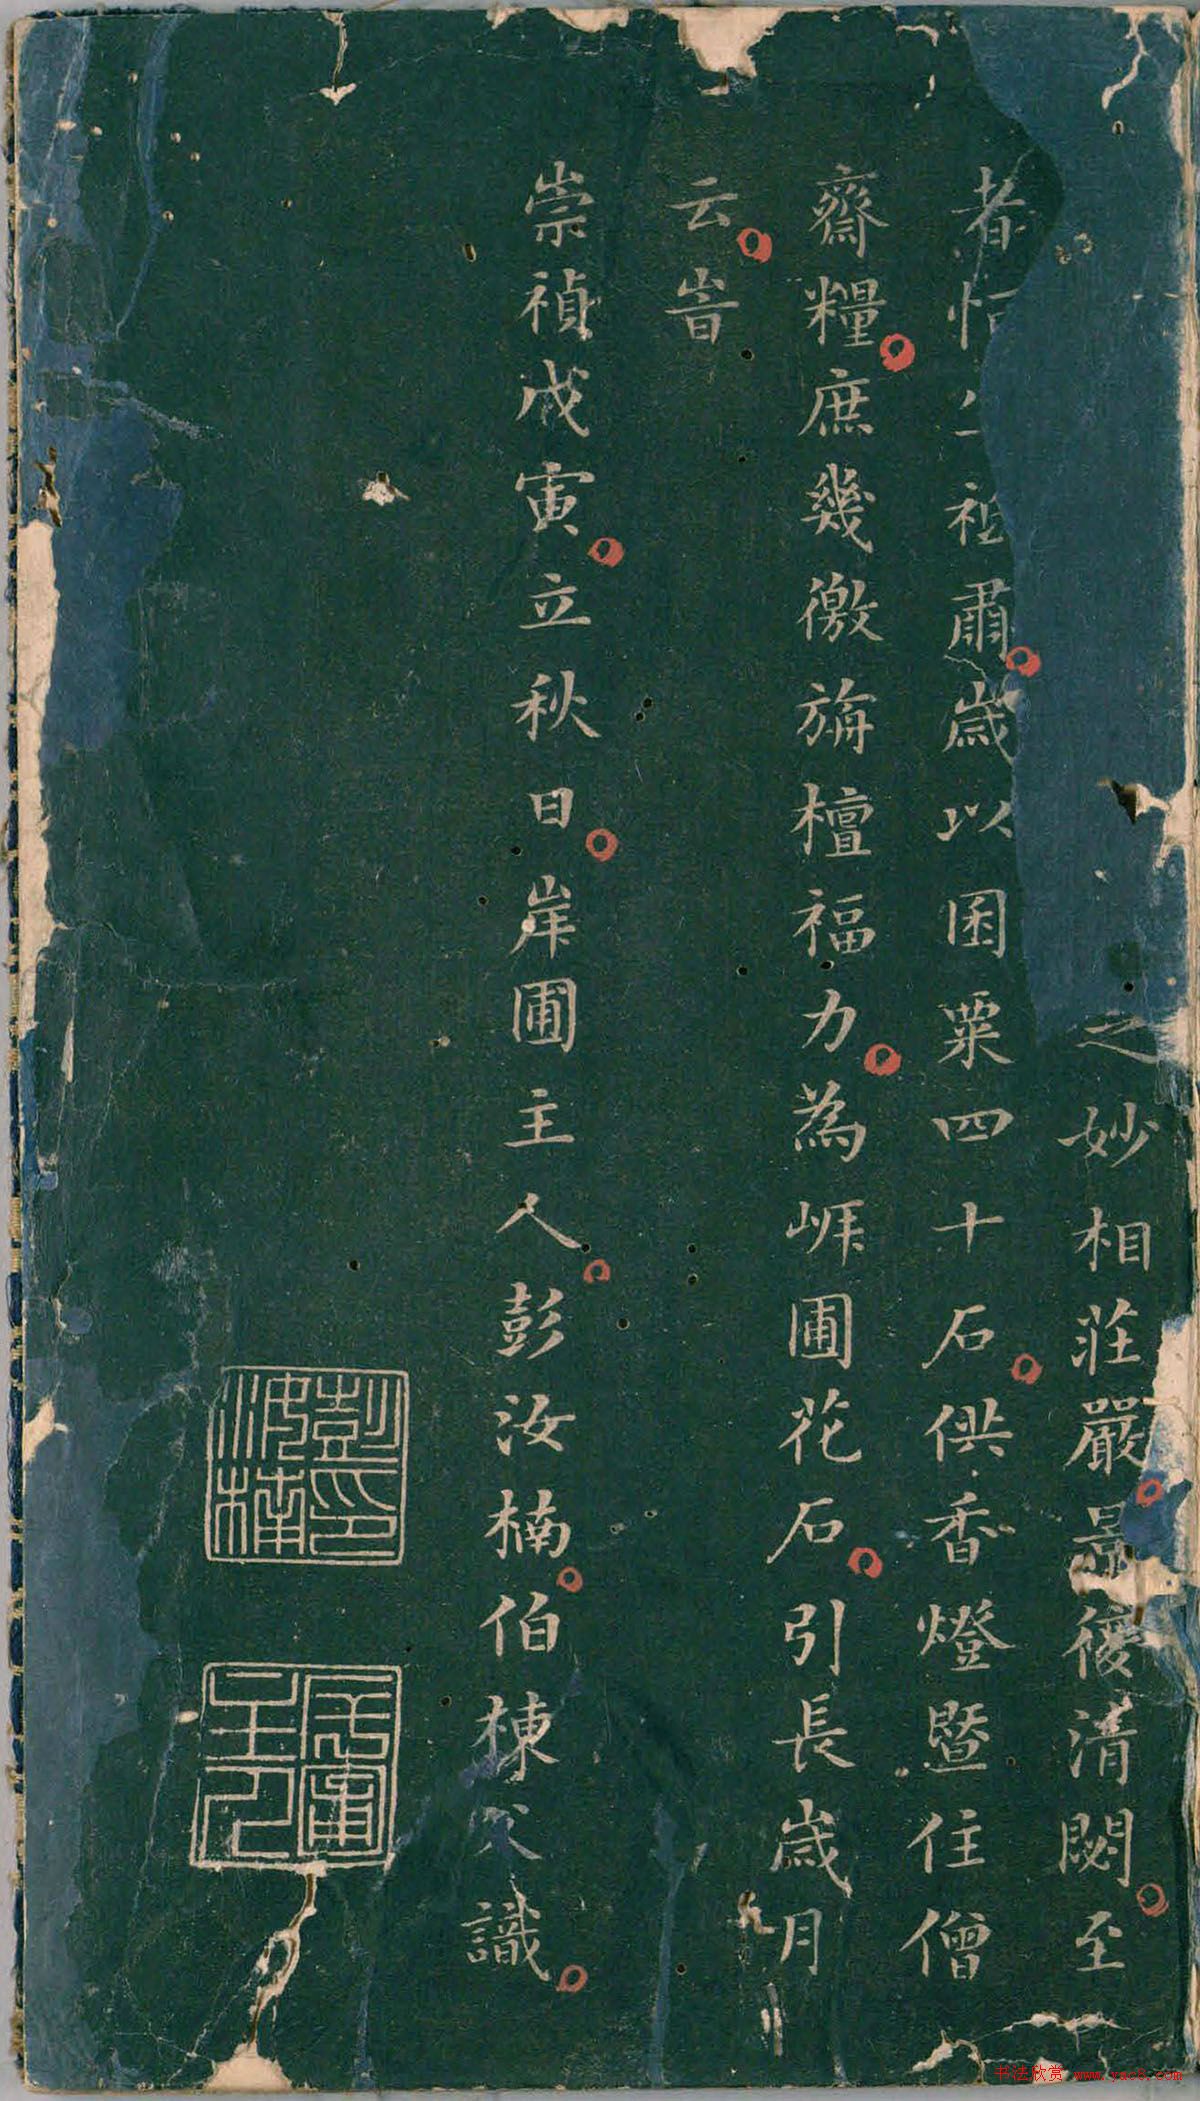 之妙相莊嚴景後清閟至
者恒祖肅歲以囷粟四十石供香燈暨住僧
齋糧庶幾徼旃檀福力為崕圃花石引長歲月
云旹
崇禎戊寅立秋日岸圃主人彭汝楠伯棟父識
彭汝楠印
書法欣赏 www.yac8.com